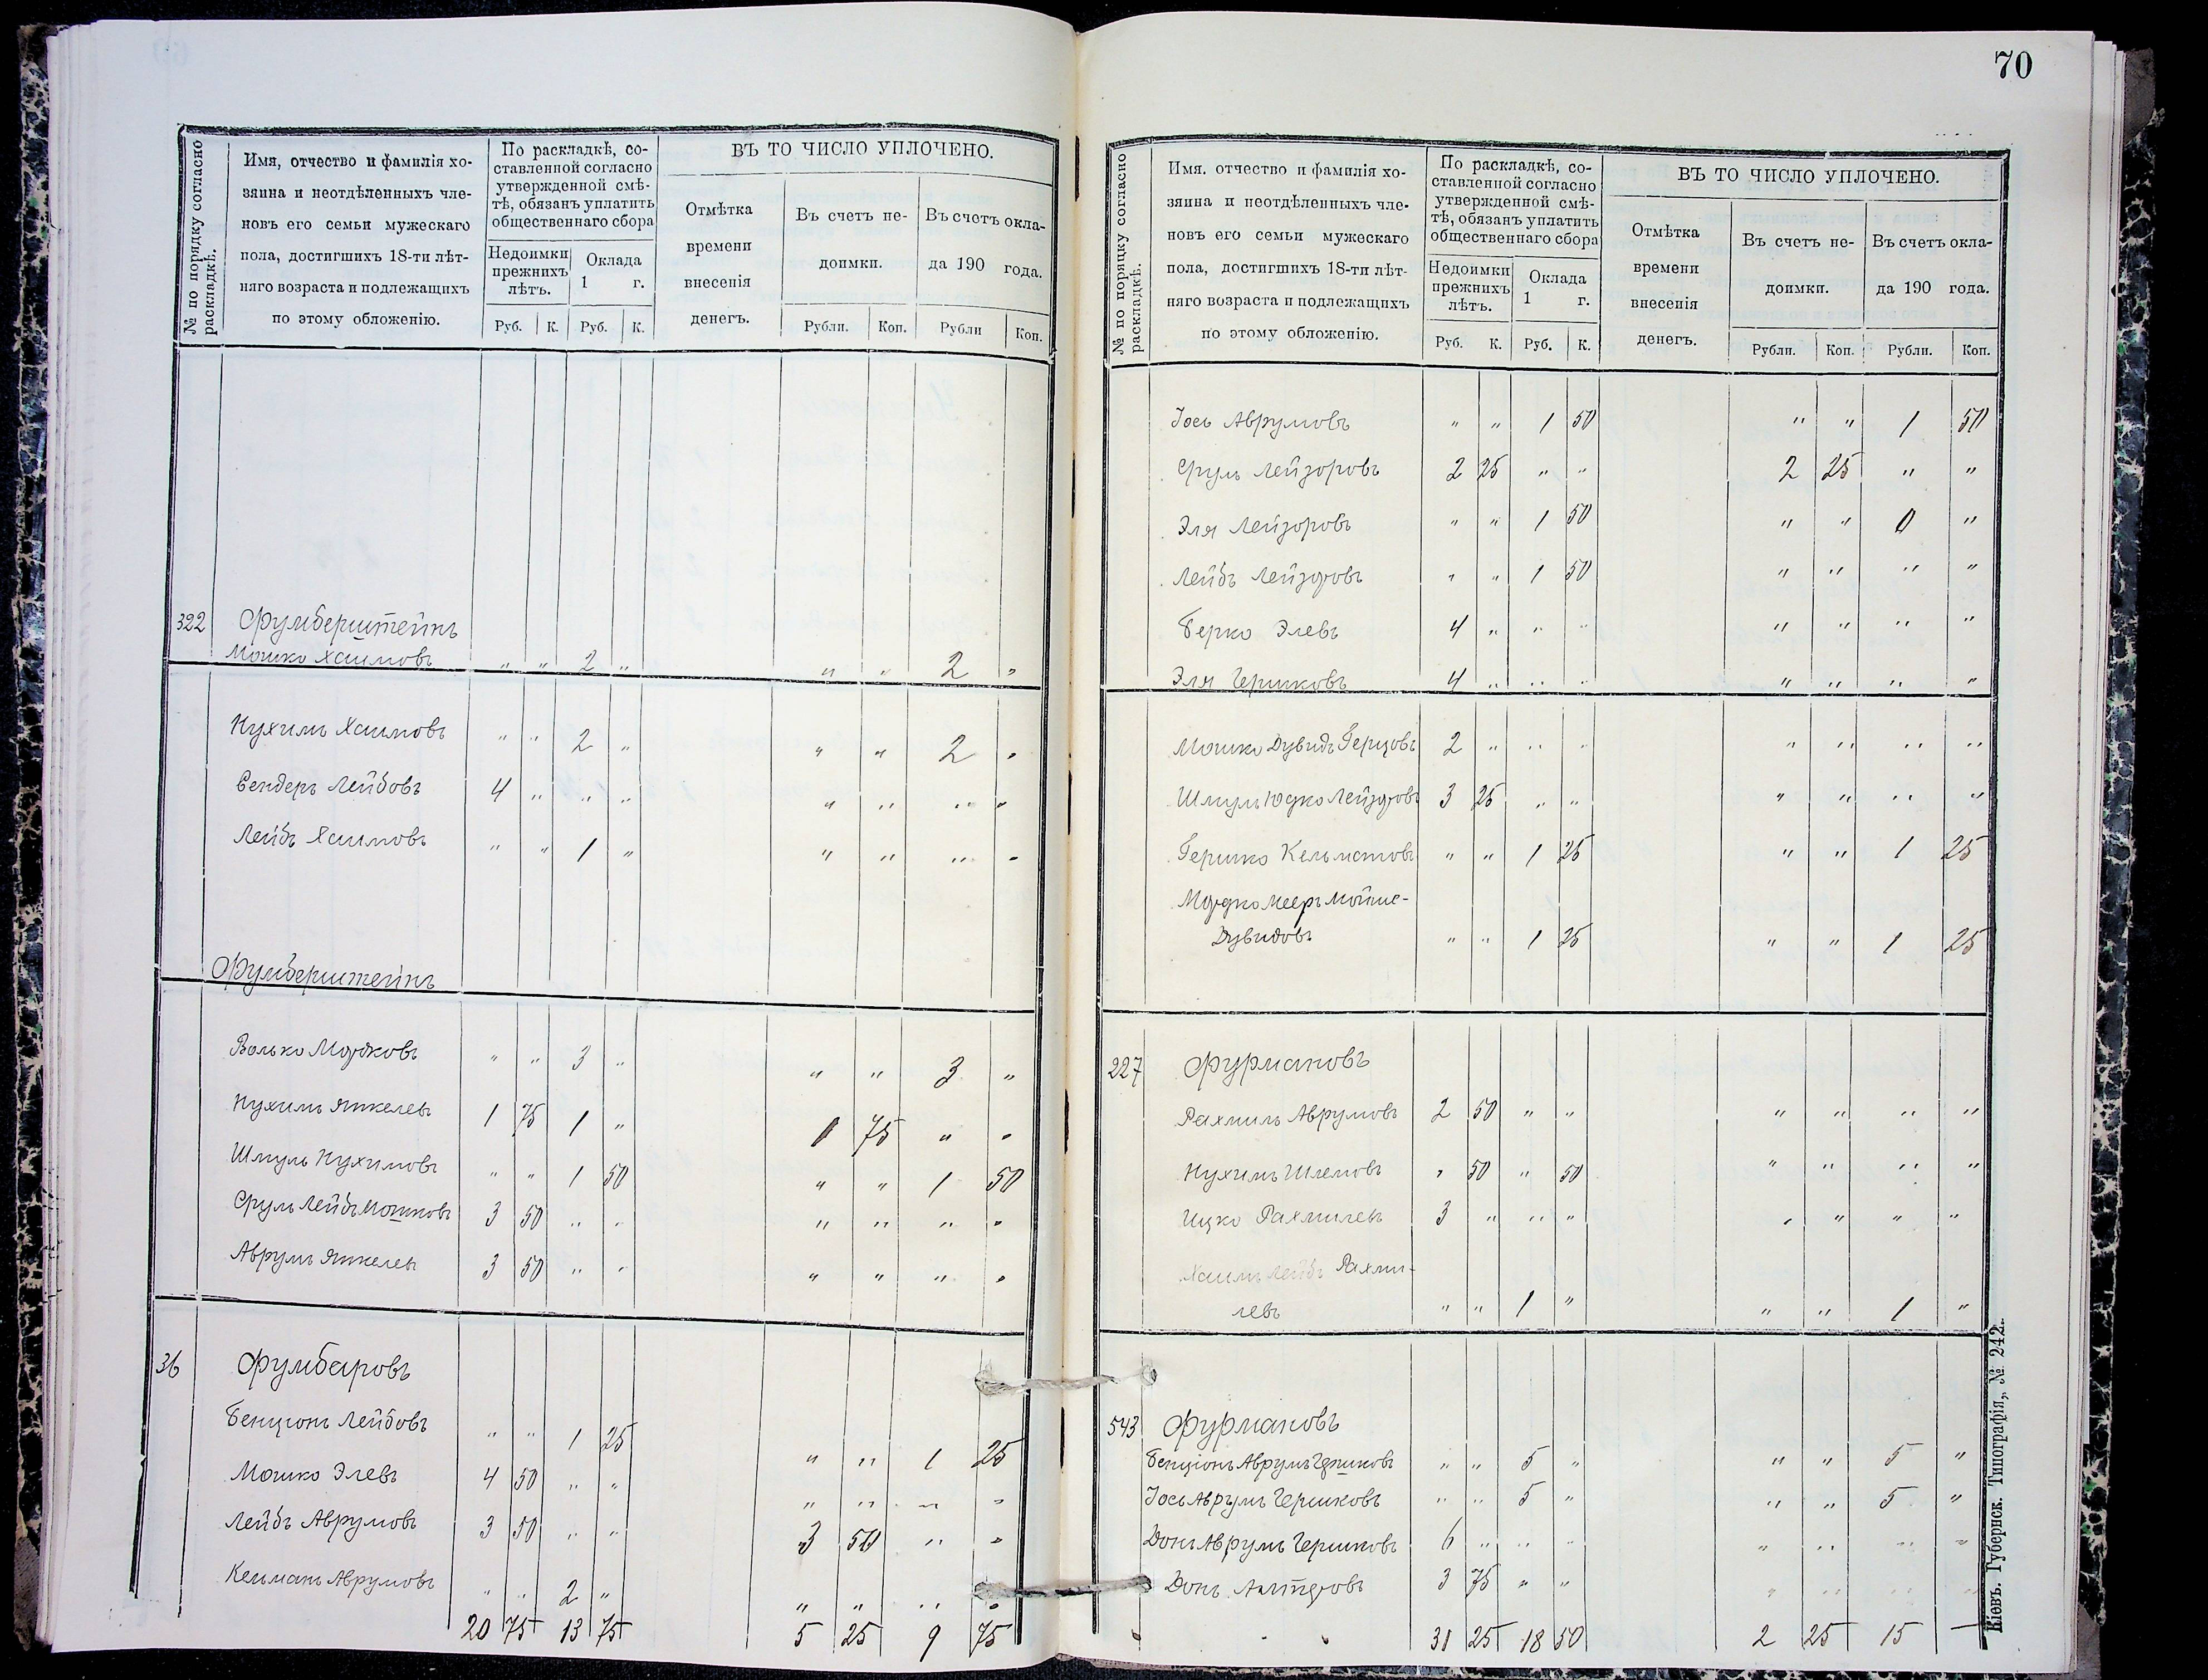 № по порядку согласно раскладкѣ.
Имя, отчество и фамилія хо-
зяина и неотдѣленныхъ чле-
новъ его семьи мужескаго
пола, достигшихъ 18-ти лѣт-
няго возраста и подлежащихъ
по этому обложенію.
По раскладкѣ, со-
ставленной согласно
утвержденной смѣ-
тѣ, обязанъ уплатить
общественнаго сбора
Недоимки
прежнихъ
лѣтъ.
Оклада
1 г.
Руб. К. Руб. К.
ВЪ ТО ЧИСЛО УПЛОЧЕНО.
Отмѣтка
времени
внесенія
денегъ.
Въ счетъ не-
доимки.
Въ счетъ окла-
да 190 года.
Рубли. Коп. Рубли Коп.
322 Фумберштейнъ
Мошко Хаимовъ " " 2 " " " 2 "
Нухимъ Хаимовъ " " 2 " " " 2 "
Сендеръ Лейбовъ 4 " " " " " " "
Лейбъ Хаимовъ " " 1 " " " " "
Фумберштейнъ
Волько Мордковъ " " 3 " " " 3 "
Нухимъ Янкелев 1 75 1 " 1 75 " "
Шмуль Нухимовъ " " 1 50 " " 1 50
Сруль Лейбъ Мошковъ 3 50 " " " " " "
Аврумъ Янкелев 3 50 " " " " " "
36 Фумбаровъ
Бенціонъ Лейбовъ " " 1 25 " " 1 25
Мошко Элевъ 4 50 " " " " " "
Лейбъ Аврумовъ 3 50 " " 3 50 " "
Кельманъ Аврумовъ " " 2 " " " " "
20 75 13 75 5 25 9 75
70
№ по порядку согласно раскладкѣ.
Имя, отчество и фамилія хо-
зяина и неотдѣленныхъ чле-
новъ его семьи мужескаго
пола, достигшихъ 18-ти лѣт-
няго возраста и подлежащихъ
по этому обложенію.
По раскладкѣ, со-
ставленной согласно
утвержденной смѣ-
тѣ, обязанъ уплатить
общественнаго сбора
Недоимки
прежнихъ
лѣтъ.
Оклада
1 г.
Руб. К. Руб. К.
ВЪ ТО ЧИСЛО УПЛОЧЕНО.
Отмѣтка
времени
внесенія
денегъ.
Въ счетъ не-
доимки.
Въ счетъ окла-
да 190 года.
Рубли. Коп. Рубли. Коп.
Іось Аврумовъ " " 1 50 " " 1 50
Сруль Лейзоровъ 2 25 " " 2 25 " "
Эля Лейзоровъ " " 1 50 " " 0 "
Лейбъ Лейзоровъ " " 1 50 " " " "
Берко Элевъ 4 " " " " " " "
Эля Гершковъ 4 " " " " " " "
Мошко Дувидъ Герцовъ 2 " " " " " " "
Шмуль Юдко Лейзоровъ 3 25 " " " " " "
Гершко Кельмановъ " " 1 25 " " 1 25
Мордко Мееръ Мойше-
Дувидовъ " " 1 25 " " 1 25
227 Фурмановъ
Рахмиль Аврумовъ 2 50 " " " " " "
Нухимъ Шлемовъ " 50 " 50 " " " "
Ицко Рахмилев 3 " " " " " " "
Хаимъ Лейбъ Рахми-
левъ " " 1 " " " 1 "
543 Фурмановъ
Бенціонъ Аврумъ Гершковъ " " 5 " " " 5 "
Іось Аврумъ Гершковъ " " 5 " " " 5 "
Донъ Аврумъ Гершковъ 6 " " " " " " "
Донъ Алтеровъ 3 75 " " " " " "
31 25 18 50 2 25 15 —
Кіевъ. Губернск. Типографія,, № 242.